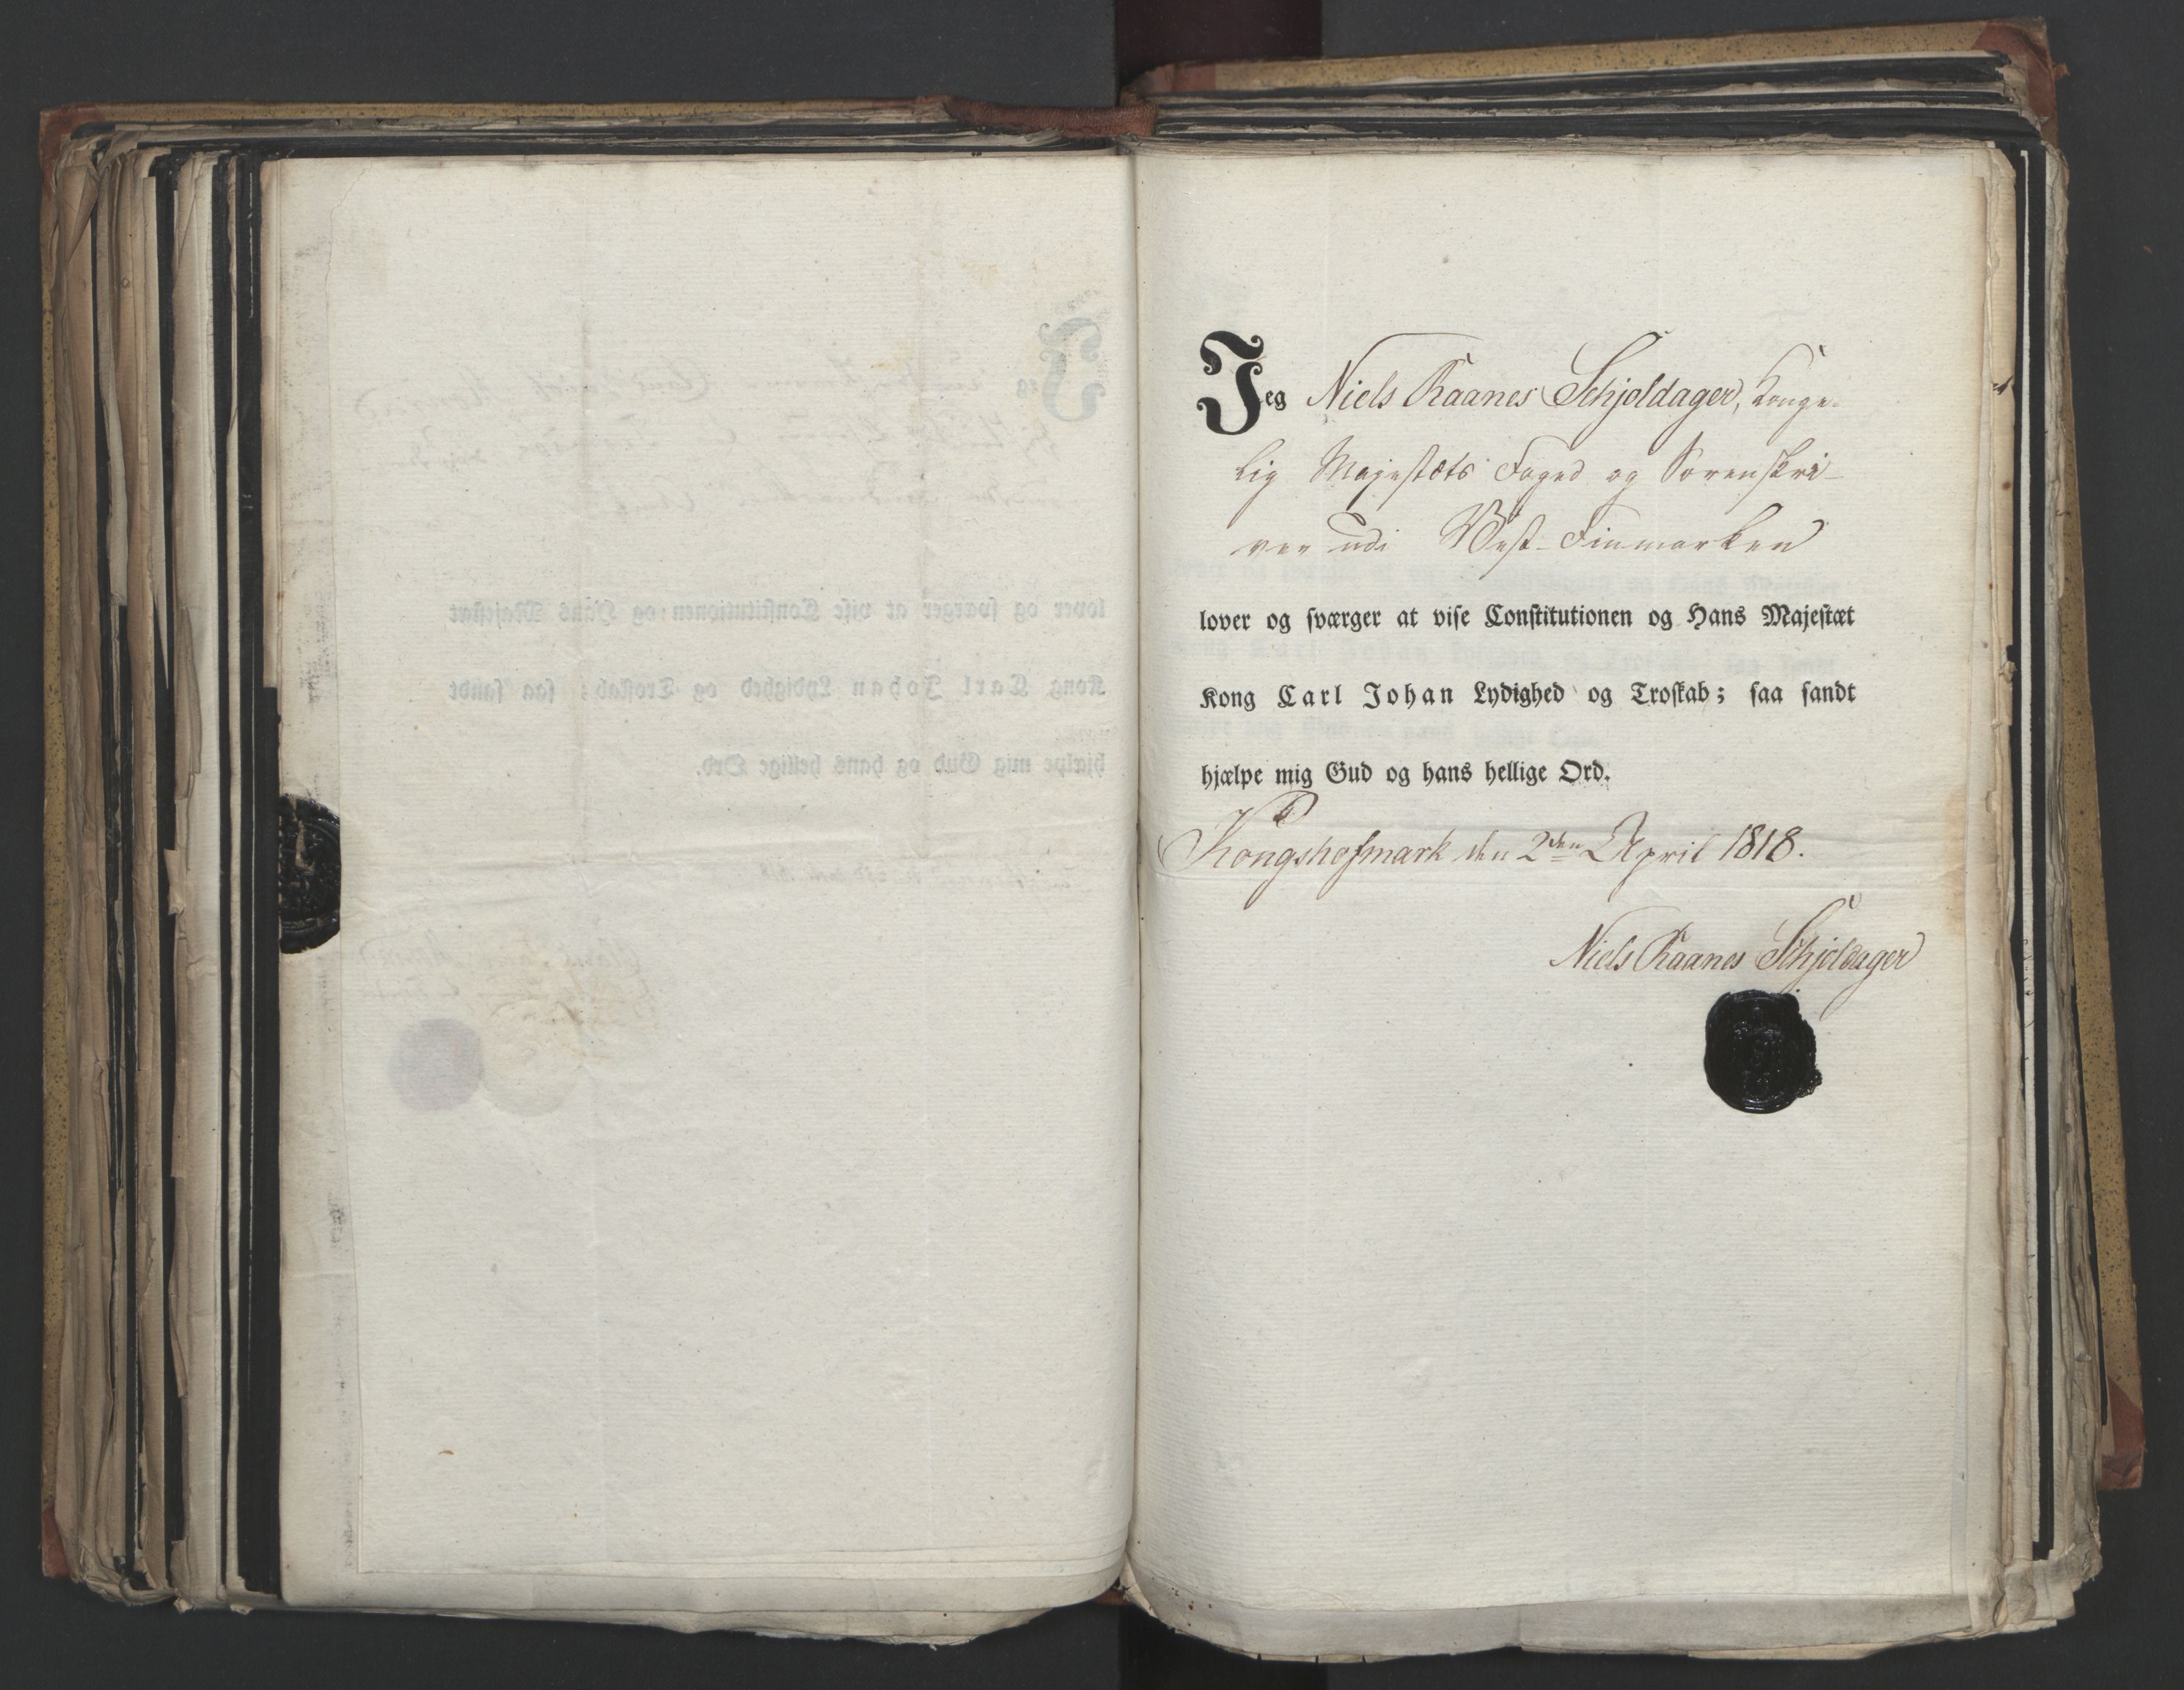 Jeg Niels Raanes Schjeldager, Konge-
lig Majestæts Foged og Sorenskri-
ver udi Vest-Finmarken
lover og sværger at vise Constitutionen og Hans Majestæt
Kong Carl Johan Lydighed og Troskab; saa sandt
hjælpe mig Gud og hans hellige Ord.
Kongshofmark den 2den April 1818.
Niels Raanes Schjeldager